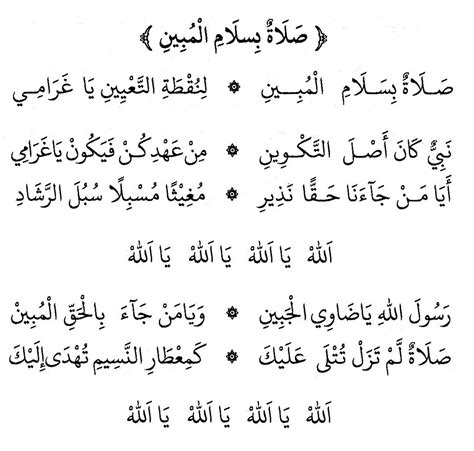 ﴿ صَلَاةٌ بِسلَامِ الْمُبِينِ ﴾
صَلَاةٌ بِسَلَامِ الْمُبِينِ ۞ لِنُقْطَةِ التَّعْيِينِ يَا غَرَامِي
نَبِيٌّ كَانَ أَصْلَ التَّكْوِينِ ۞ مِنْ عَهْدِ كُنْ فَيَكُوْنُ يَاغَرَامِي
أَيَا مَنْ جَآءَنَا حَقًّا نَذِيرِ ۞ مُغِيْثًا مُسْبِلًا سُبُلَ الرَّشَادِ
اَللهْ يَا اَللهْ يَا اَللهْ يَا اَللهْ
رَسُولَ اللهِ يَاضَاوِي الْجَبِينِ ۞ وَيَامَنْ جَآءَ بِالْحَقِّ الْمُبِيْنْ
صَلَاةٌ لَّمْ تَزَلْ تُتْلَى عَلَيْكَ ۞ كَمِعْطَارِ النَّسِيمِ تُهْدَى إِلَيْكَ
اَللهْ يَا اَللهْ يَا اَللهْ يَا اَللهْ